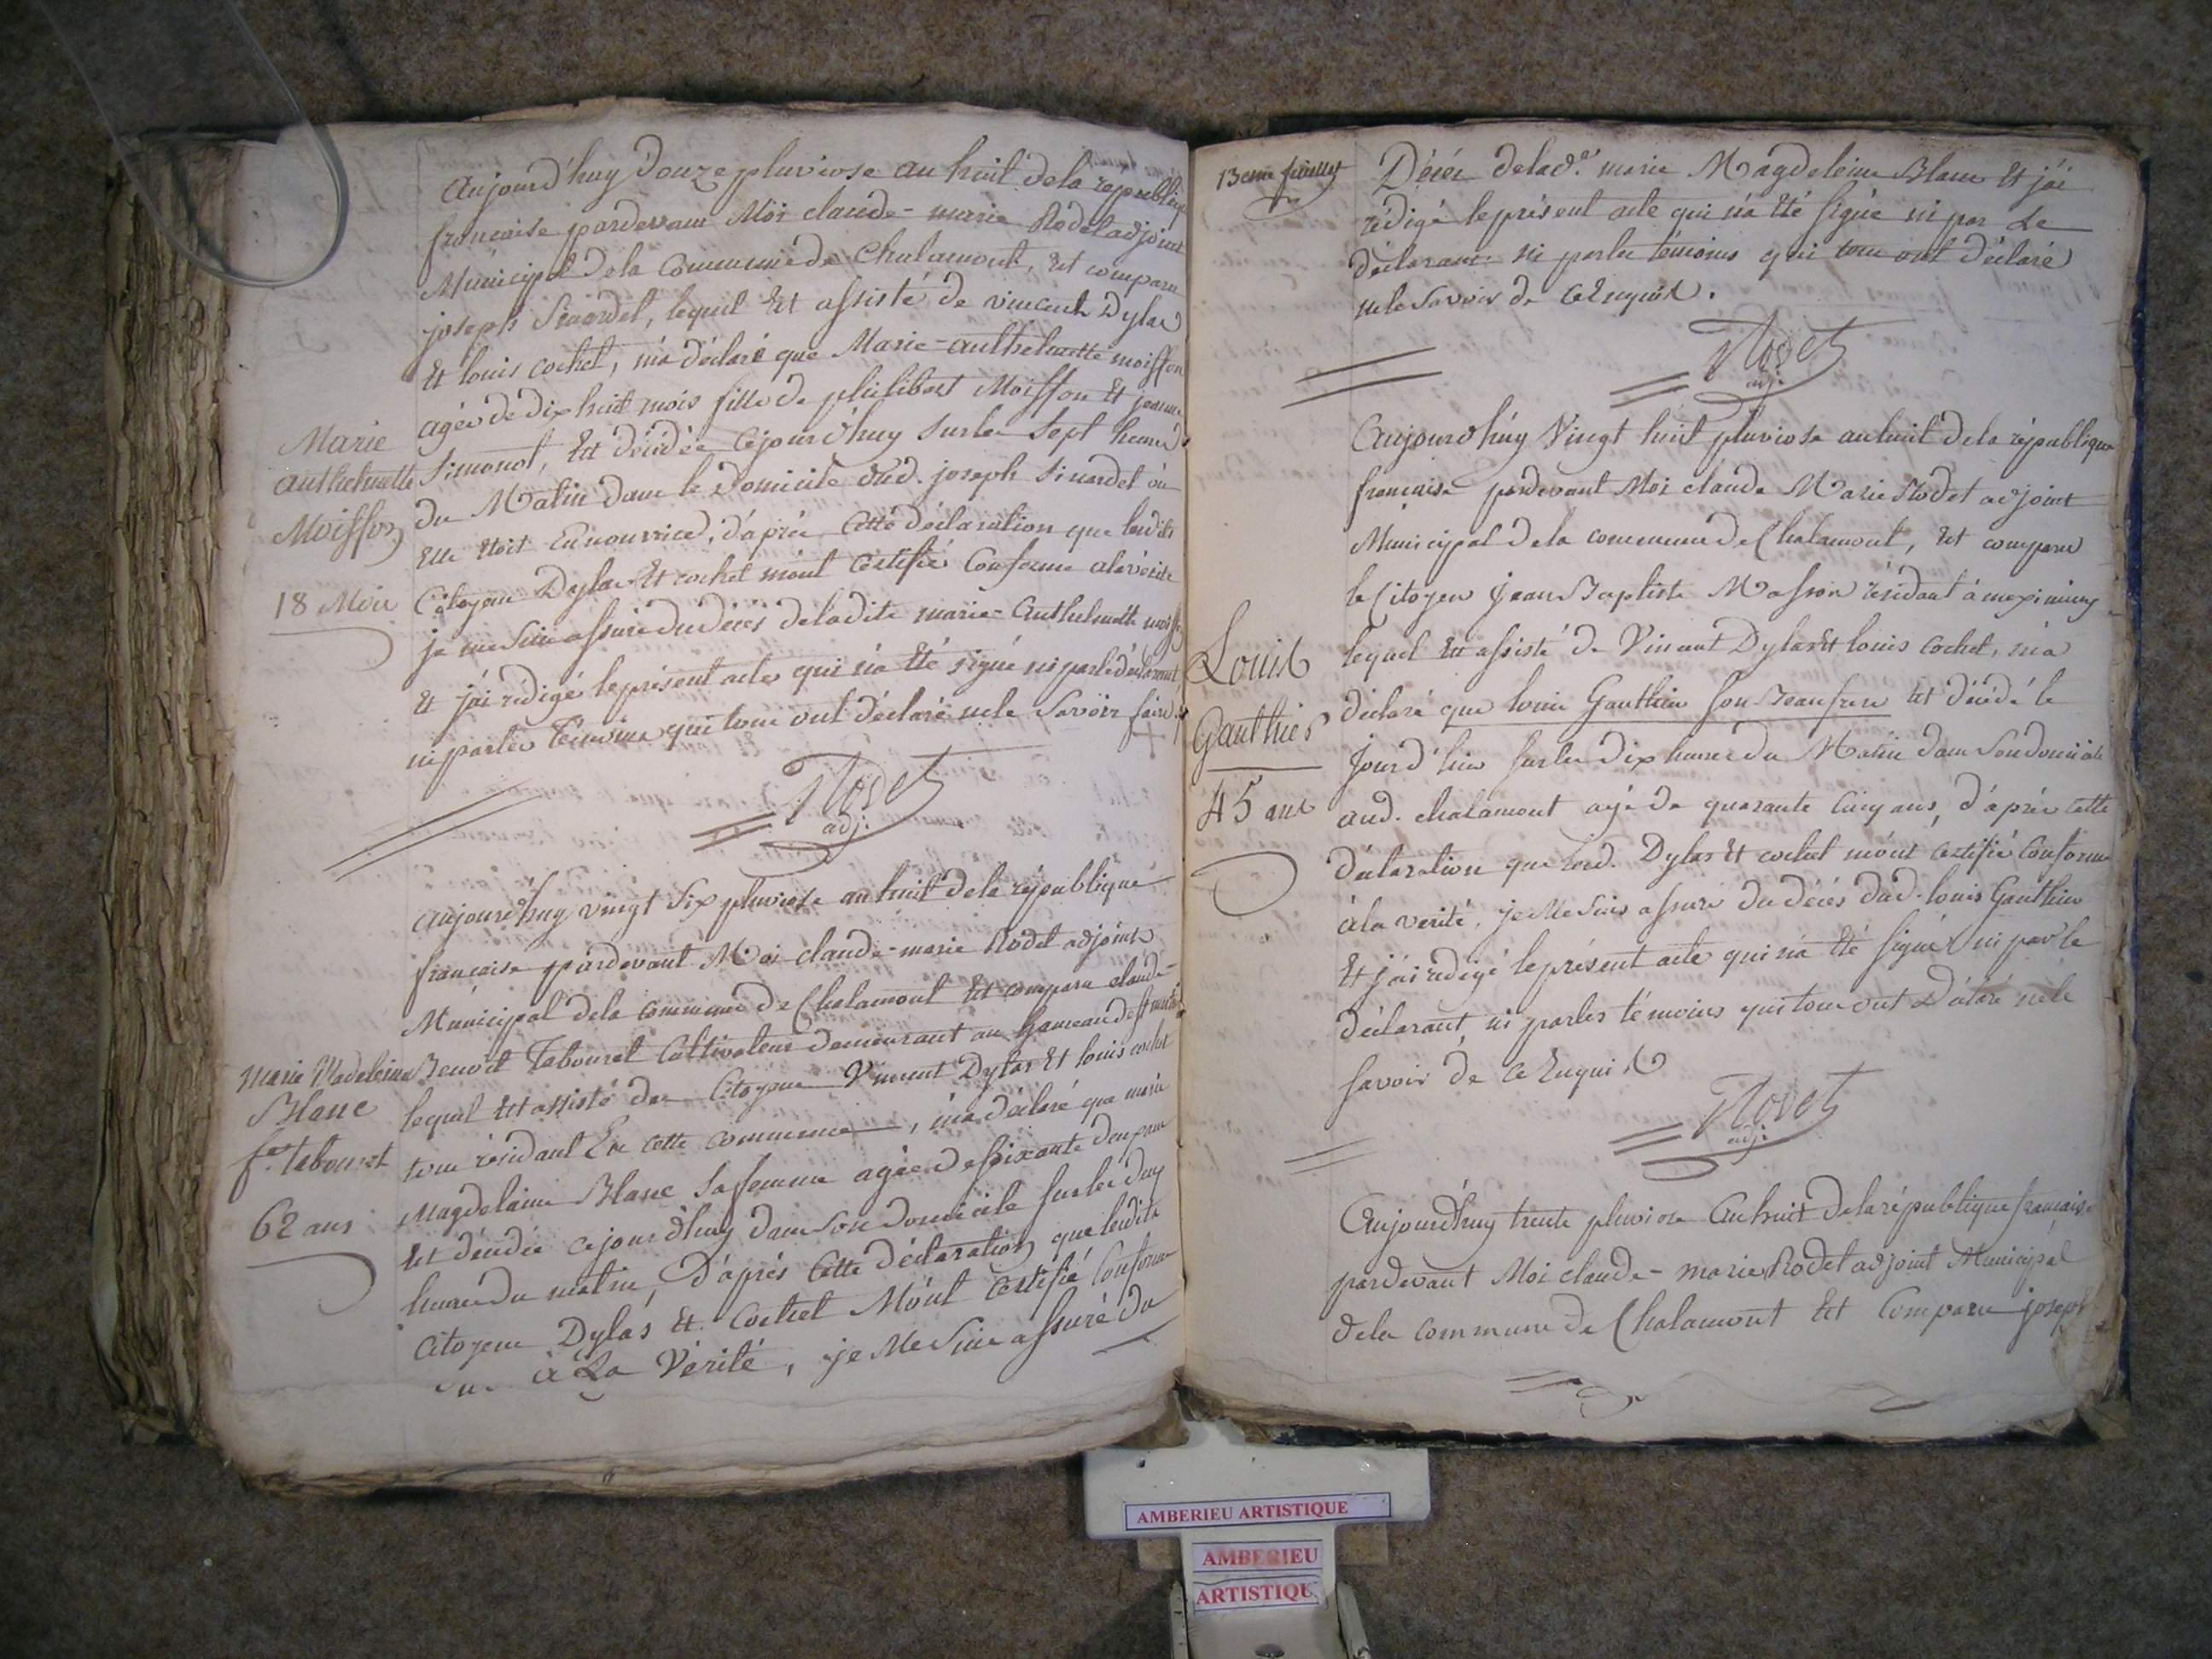 Aujourd'huy douze pluviose an huit de la republique
française pardevant Moi claude-marie Rodet adjoint
Municipal de la Commune de Chalamont, Est comparu
joseph Sinardet, lequel Est assisté de vincent Dylas
Et louis cochet, m'a déclaré que Marie-anthelmette moisson
agée de dix huit mois fille de philibert Moisson Et jeanne
Simonot, Est décédée cejourd'huy sur les Sept heures
du Matin dans le Domicile dud. joseph Sinardet où
Elle Etoit En nourrice, d'après Cette déclaration que lesdits
Citoyens Dylas Et cochet m'ont Certifié Conforme à la vérité
je me suis assuré du décès de ladite marie-Anthelmette moisson
Et j'ai rédigé le présent acte qui n'a Eté signé ni par le déclarant
ni par les Témoins qui tous ont déclaré ne le Savoir faire
Rodet
adj.
Marie
anthelmette
Moisson
18 Mois
Aujourd'huy vingt Six pluviose an huit de la république
française pardevant Moi claude-marie Rodet adjoint
Municipal de la commune de Chalamont Est comparu claude-
Benoit Tabouret Cultivateur demeurant au hameau de
lequel Est assisté des Citoyens Vincent Dylas Et louis cochet
tous résidant En cette commune, m'a déclaré que marie
Magdelaine Blanc Sa femme agée de soixante deux ans
Est décédée cejourd'huy dans Son domicile sur les
heures du matin, D'après Cette déclaration que lesdits
Citoyens Dylas Et Cochet M'ont Certifié Conforme
à La Vérité, je Me Suis assuré du
Marie Madeleine
Blanc
fe. tabouret
62 ans
13eme feuillet
Décès de lad.e marie Magdeleine Blanc Et j'ai
rédigé le présent acte qui n'a Eté signé ni par Le
déclarant ni par les témoins qui tous ont déclaré
ne le Savoir de ce Enquis.
Rodet
adj.
Aujourd'huy Vingt huit pluviose an huit de la république
française pardevant Moi claude Marie Rodet adjoint
Municipal de la commune de Chalamont, Est comparu
le Citoyen Jean Baptiste Masson résidant à meximieux
lequel Est assisté de Vincent Dylas Et louis cochet, m'a
déclaré que louis Gauthier son Beaufrere Est décédé le
Jour d'hier sur les dix heures du Matin dans Son domicile
aud. chalamont agé de quarante Cinq ans, d'après cette
déclaration que lesd. Dylas Et cochet m'ont certifié Conforme
à la verité, je Me Suis assuré du décès dud. louis Gauthier
Et j'ai redigé le présent acte qui n'a Eté signé ni par le
déclarant, ni par les témoins qui tous ont Déclaré ne le
savoir de ce Enquis
Rodet
adj.
Louis
Gauthier
45 ans
Aujourd'huy trente pluviose An huit de la république française
pardevant Moi claude-marie Rodet adjoint Municipal
de la commune de Chalamont Est Comparu joseph
AMBERIEU ARTISTIQUE
AMBERIEU
ARTISTIQU